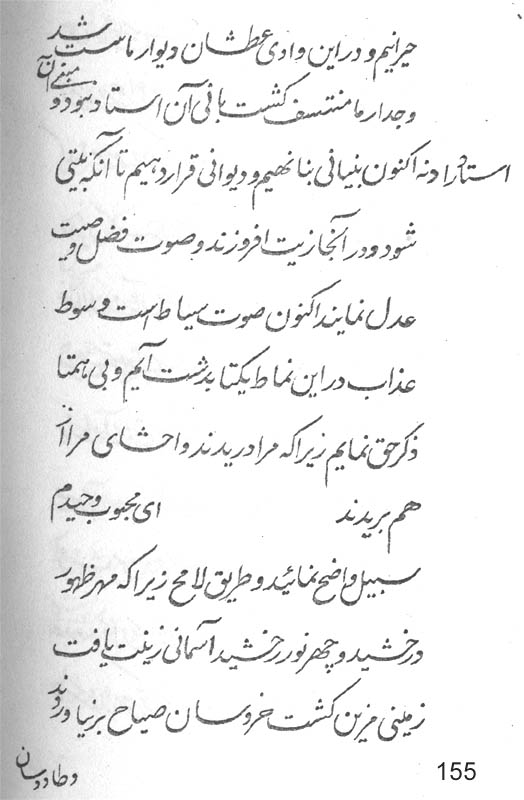 حیرانیم و در این وادی عطشان دیوار ما سست شد
و جدار ما منتسف کشت بانی آن استاد نبود و مبنی آن
استاد را د نه اکنون بنیانی بنا نهیم و دیوانی قرار دهیم تا آنکه بیتی
شود و در آنجا زیت افروزند و صوت فضل و صیت
عدل نمایند اکنون صوت سیاط است و سوط
عذاب در این نماط یکتا بدشت آئیم و بی همتا
ذکر حق نمایم زیرا که مرا دریدند و احشای مرا از
هم بریدند ای محبوب وحیدم
سبیل واضح نمائید و طریق لامح زیرا که مهر ظهور
درخشید و چهر نور رخشید آسمانی زینت یافت
زمینی مزین کشت خروسان صباح بر نیاوردند
و طاوسان
155